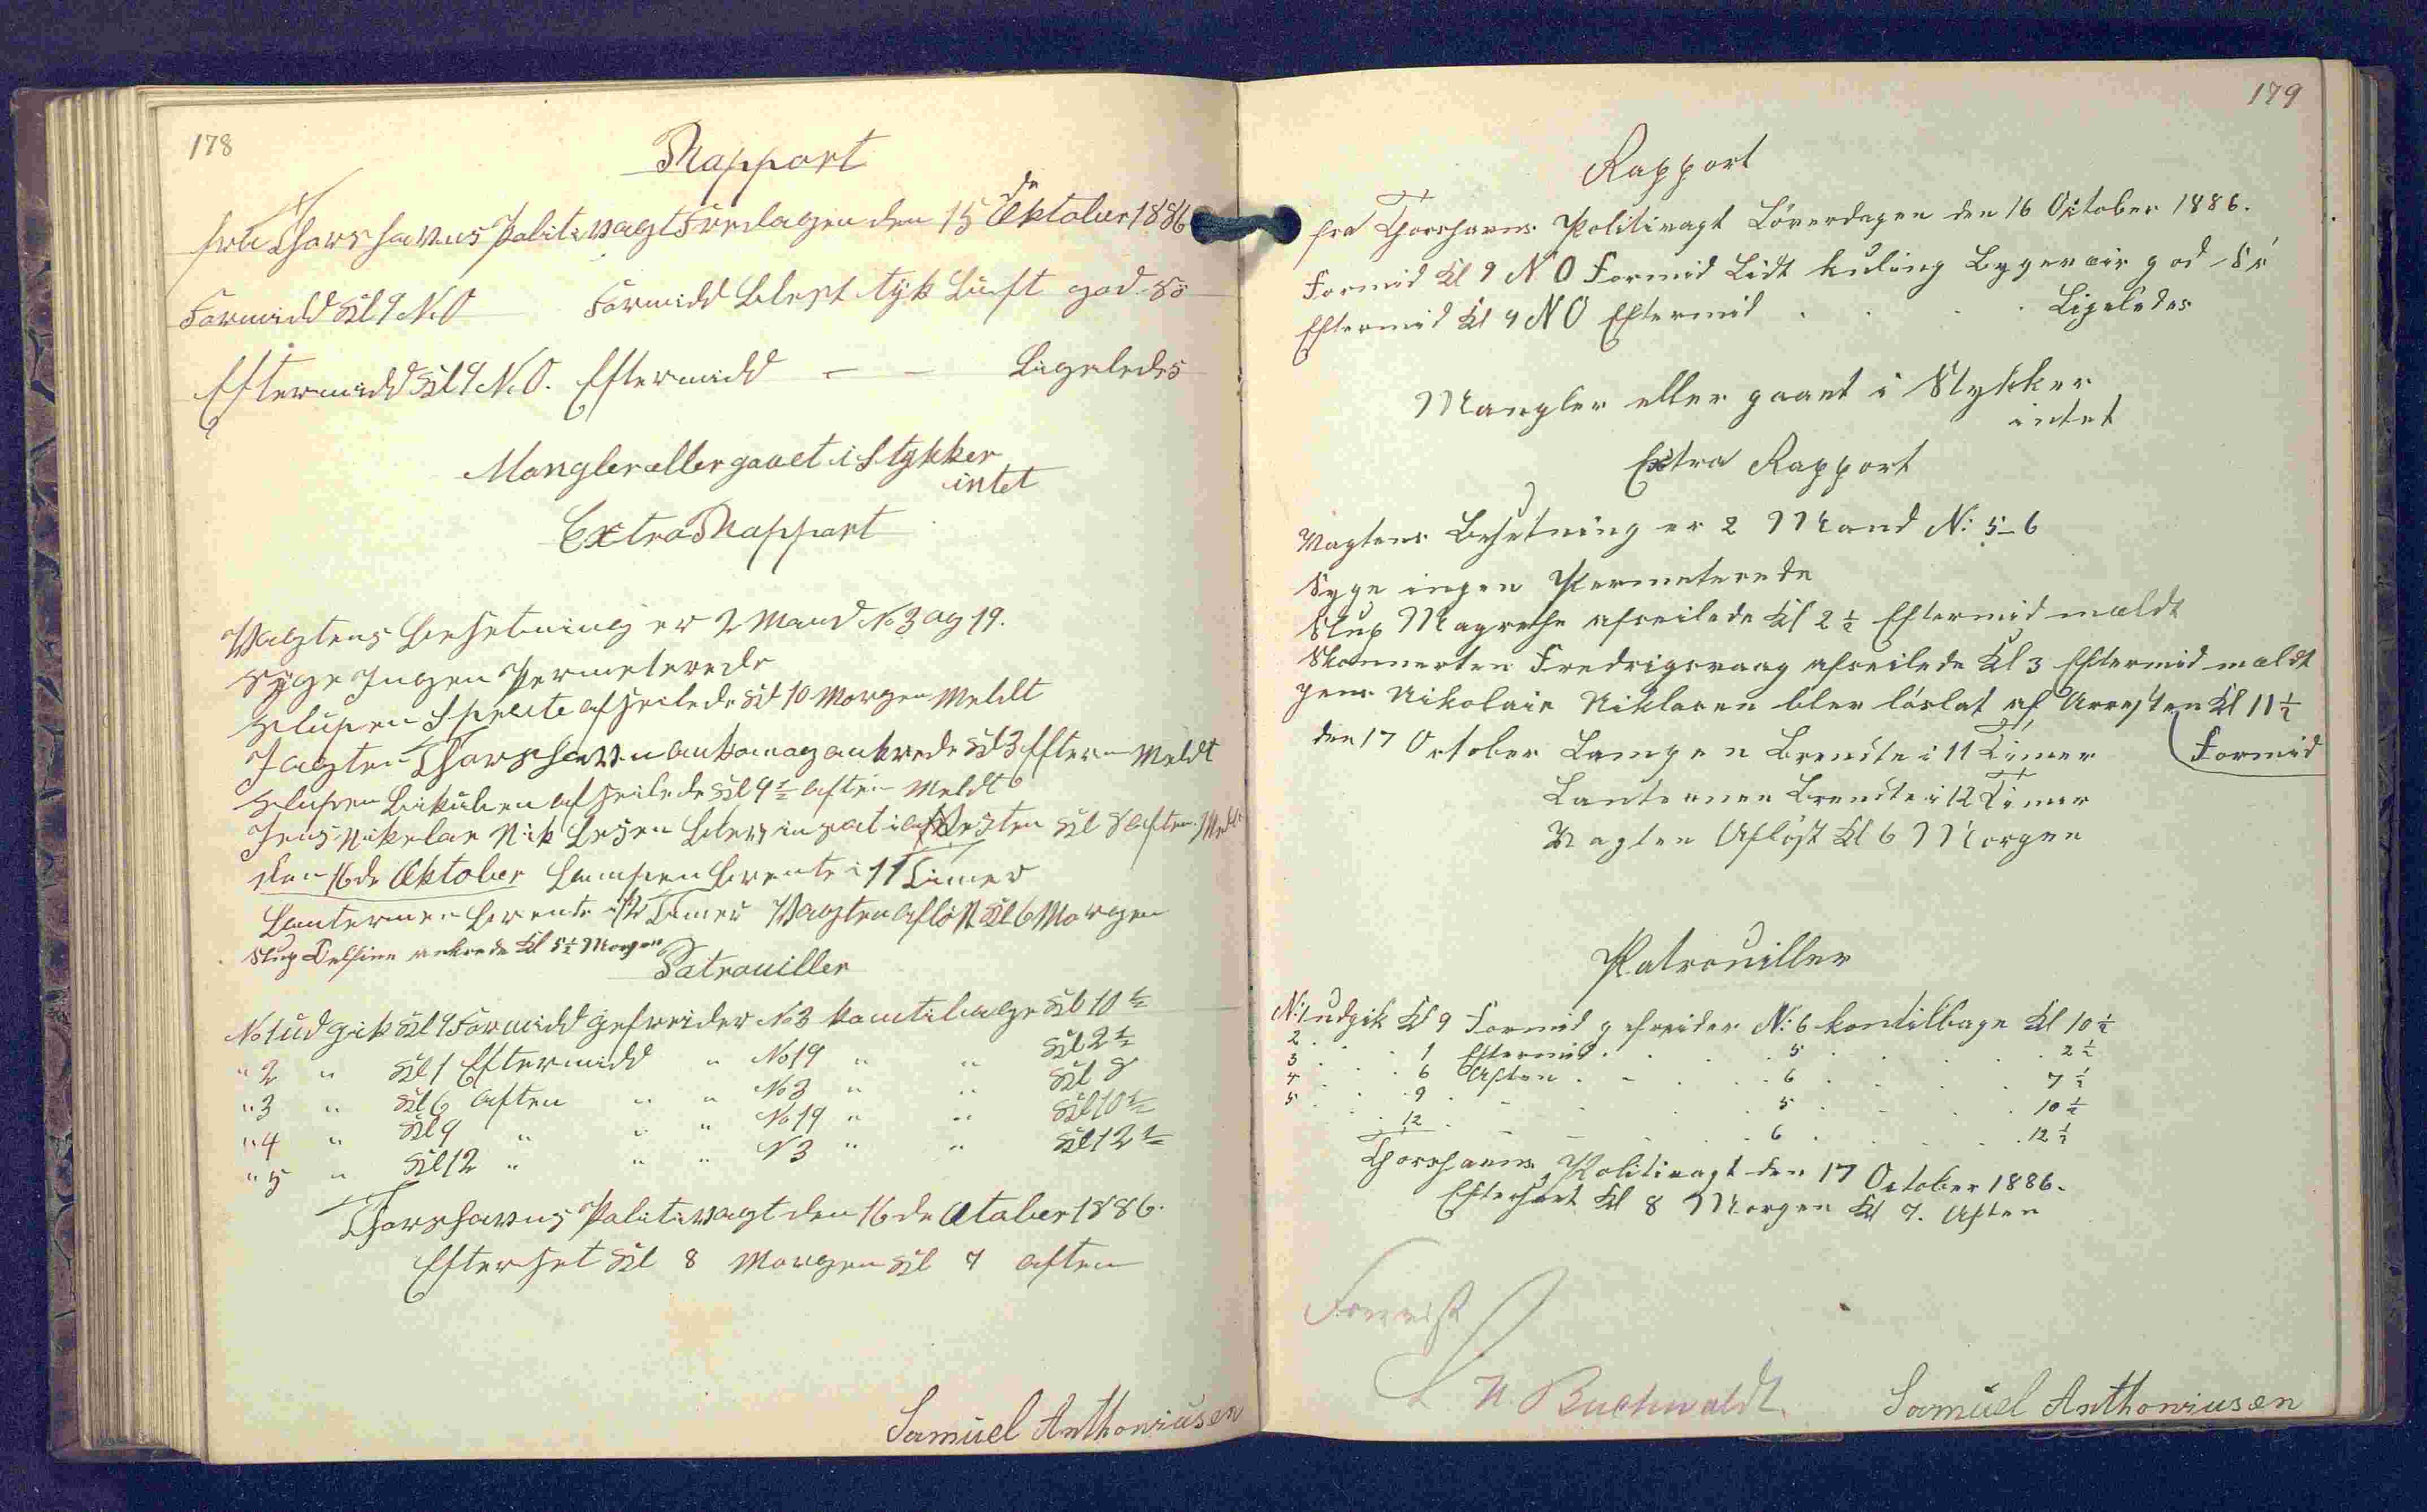 178
Rapport
fra Thorshavns Politivagt Fredagen den 15 de Oktober 1886
Formidd Kl 9 N.O Formidd blest tyk Luft god Sö
Eftermidd Kl 9 N.O. Eftermidd — — Ligeledes
Mangler eller gaaet i Stykker
intet
Extra Rapport
Vagtens besetning er 2 Mand No 3 og 19.
Syge Ingen Permeterede
Slupen afseilede Kl 10 Morgen Meldt
Jagten Thorshavn ankom og ankrede Kl 3 Efterm Meldt
Slupen afseilede Kl 9 1/2 aften Meldt
Jens Nikolae Nik Lesen blev insat i aResten Kl 8 aften Meldt
den 16 de Oktober Lampen brente i 11 Timer
Lanternen brente i 12 Timer Vagten aflöst Kl 6 Morgen
Slup Delfine ankrede Kl 5 1/2 Morgen
Patrouiller
No 1 udgik Kl 9 Formidd gefreider No 3 kom tilbage Kl 10 1/2
" 2 " Kl 1 Eftermidd " No 19 " " Kl 2 1/2
" 3 " Kl 6 aften " " No 3 " " Kl 8
" 4 " Kl 9 " " " No 19 " " Kl 10 1/2
" 5 " Kl 12 " " " N 3 " " Kl 12 1/2
Thorshavns Politivagt den 16 de Otober 1886.
Efterset Kl 8 Morgen Kl 7 aften
Samuel Anthoniusen
179
Rapport
fra Thorshavns Politivagt Löverdagen den 16 October 1886.
Formid Kl 9 N O Formid Lidt kuling Bygeveir god Sö
Eftermid Kl 9 N O Eftermid . . . . Ligeledes
Mangler eller gaaet i Stykker
intet
Extra Rapport
Vagtens Besetning er 2 Mand N: 5-6
Syge ingen Permeterede
Slup Magrethe afseilede Kl 2 1/2 Eftermid mældt
Skonnerten Fredrigsvaag afseilede Kl 3 Eftermid mældt
Jens Nikolaie Niklasen blev löslat af Arresten Kl 11 1/2
Formid
den 17 October Lampen Brendte i 11 Timer
Lanternen Brendte i 12 Timer
Vagten Aflöst Kl 6 Morgen
Patrouiller
N: 1 udgik Kl 9 Formid gefreider N: 6 kom tilbage Kl 10 1/2
2 . . . 1 Eftermid . . . 5 . . . . 2 1/2
3 . . . 6 Aften . - . . 6 . . . . 7 1/2
4 . . . 9 . - . . 5 . - . . 10 1/2
5 . . . 12 . - - . . 6 . . . . 12 1/2
Thorshavns Politivagt den 17 October 1886.
Efterset Kl 8 Morgen Kl 7. Aften
Forevist
N. Buchwaldt.
Samuel Anthoniusen